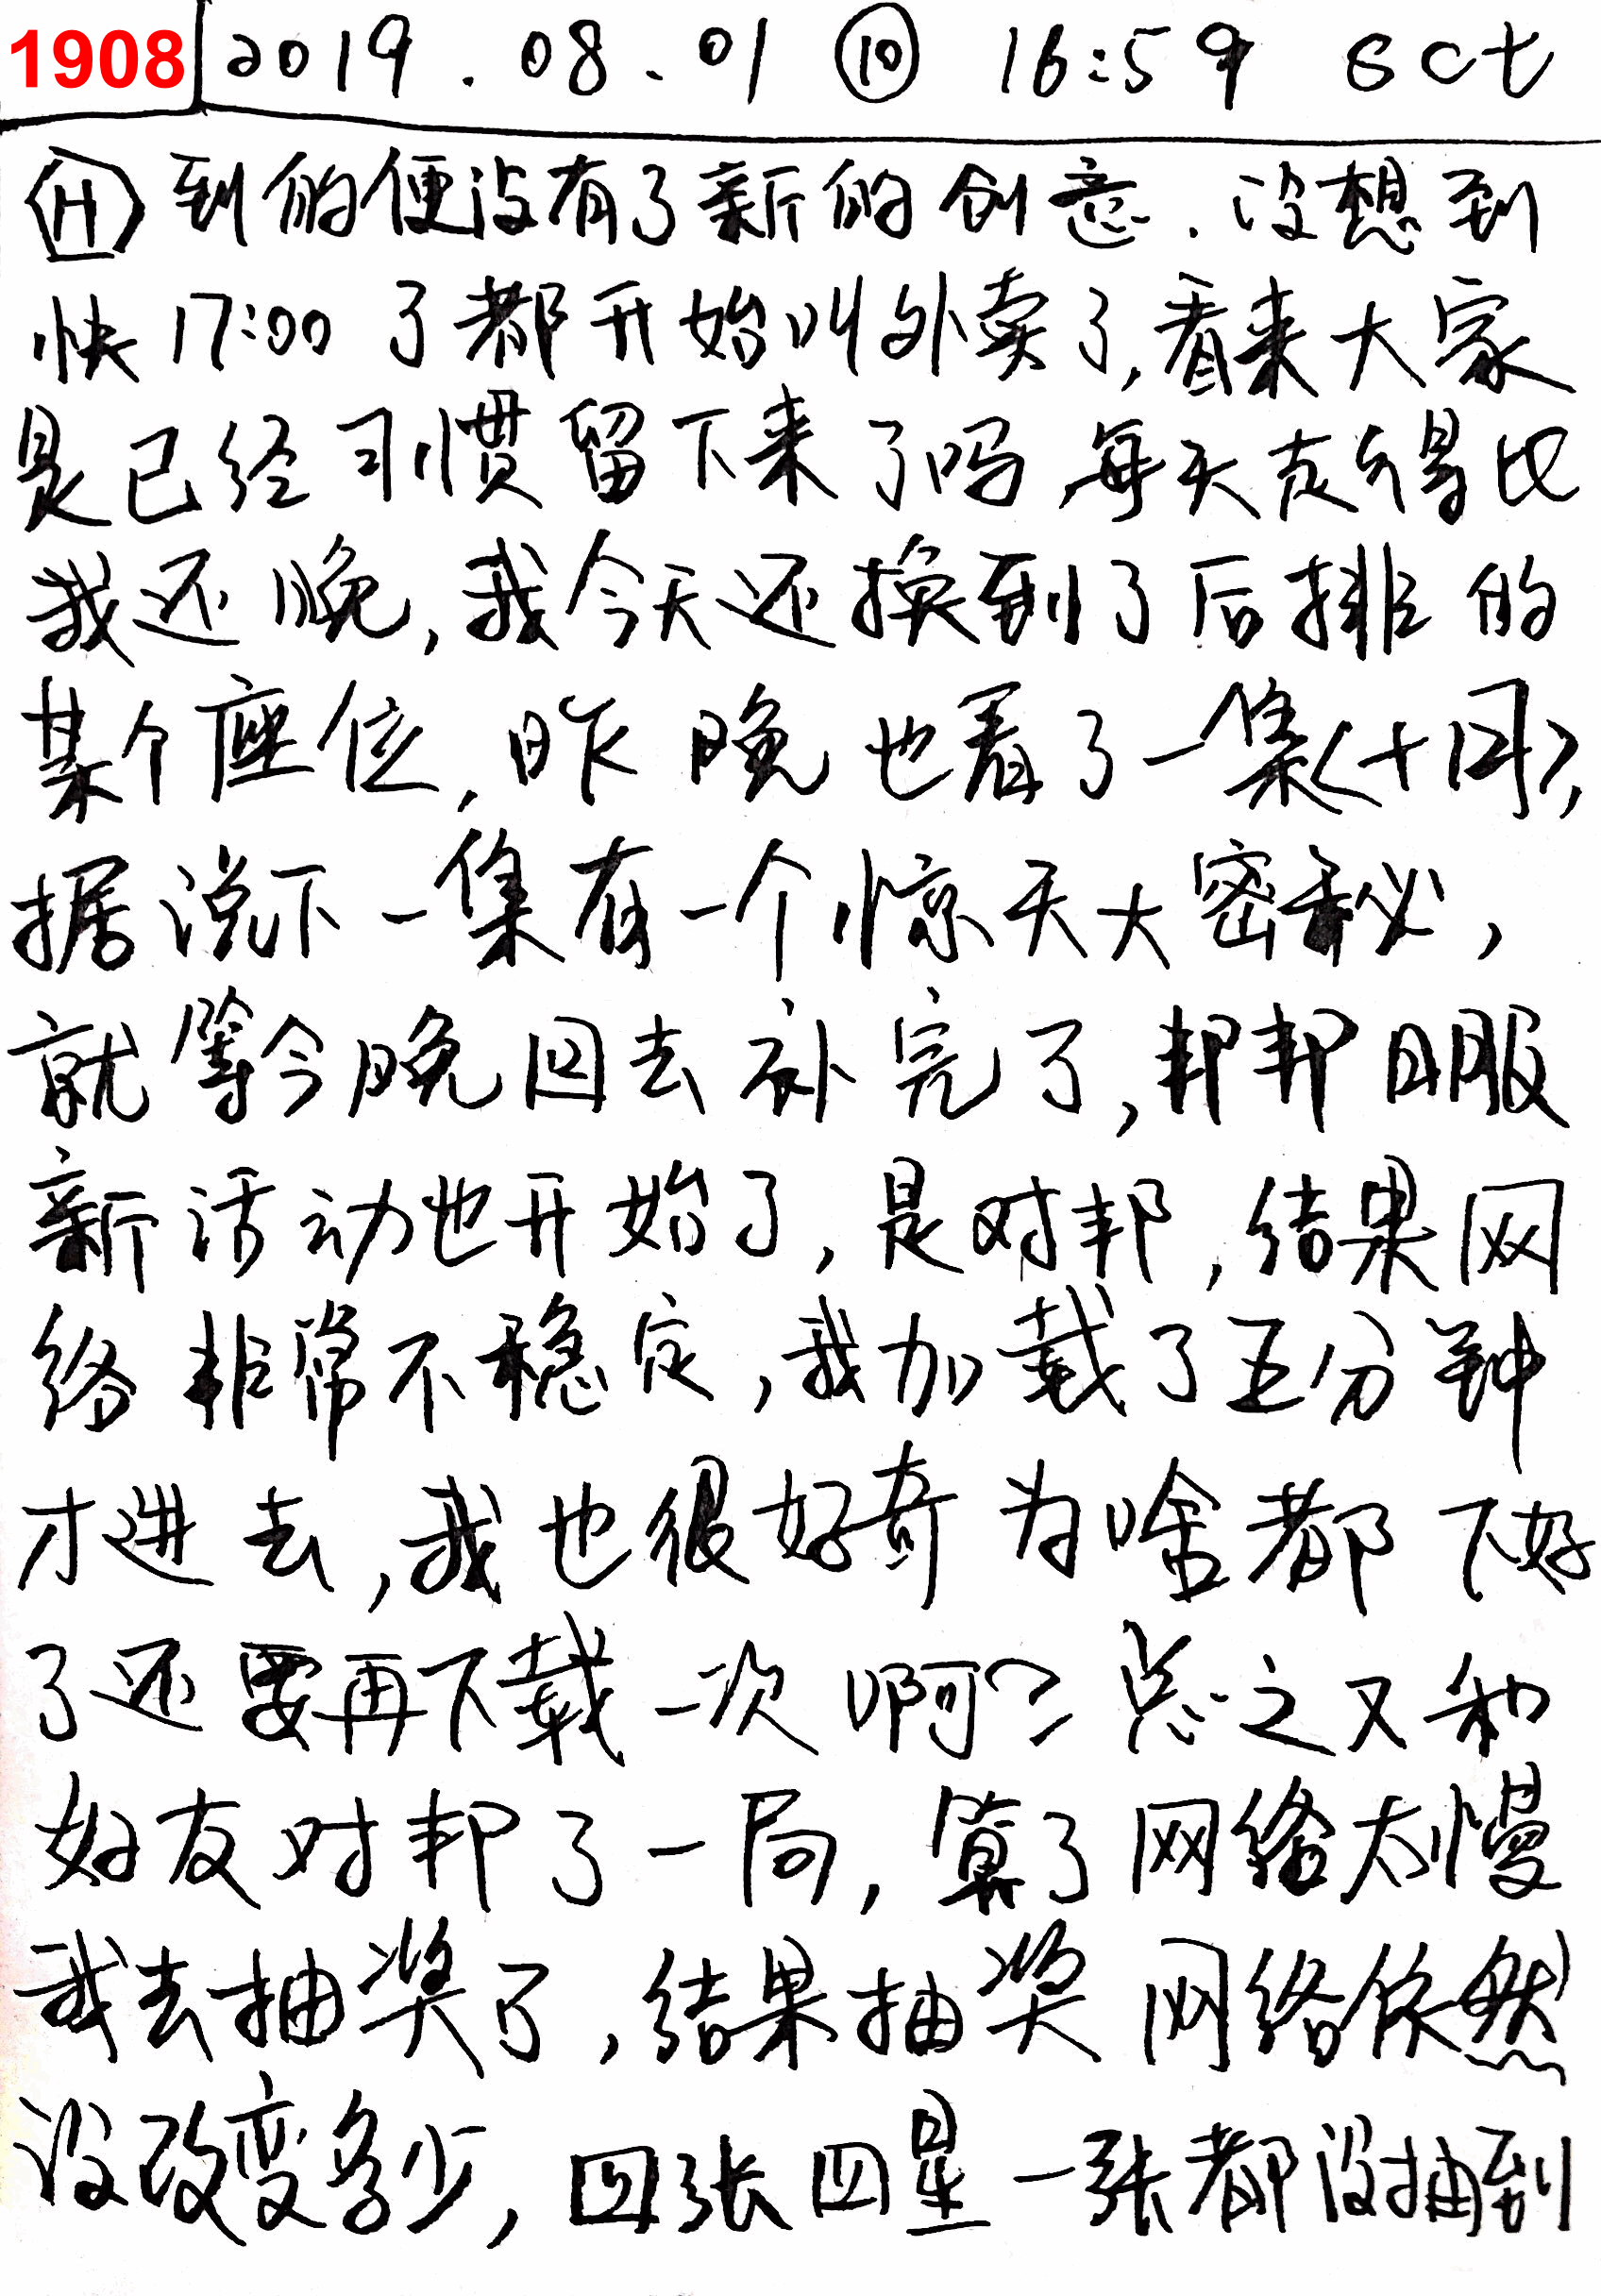 1908 2019.08.01 ⑩ 16:59 sct
Ⓗ 到的便没有了新的创意.没想到
快17:00了都开始叫外卖了,看来大家
是已经习惯留下来了吗,每天走得比
我还晚,我今天还换到了后排的
某个座位,昨晚也看了一集《十日》,
据说下一集有一个惊天大密秘,
就等今晚回去补完了,邦邦日服
新活动也开始了,是对邦,结果网
络非常不稳定,我加载了五分钟
才进去,我也很好奇为啥都下好
了还要再下载一次啊?总之又和
好友对邦了一局,算了网络太慢
我去抽奖了,结果抽奖网络依然
没改变多少,四张四星一张都没抽到